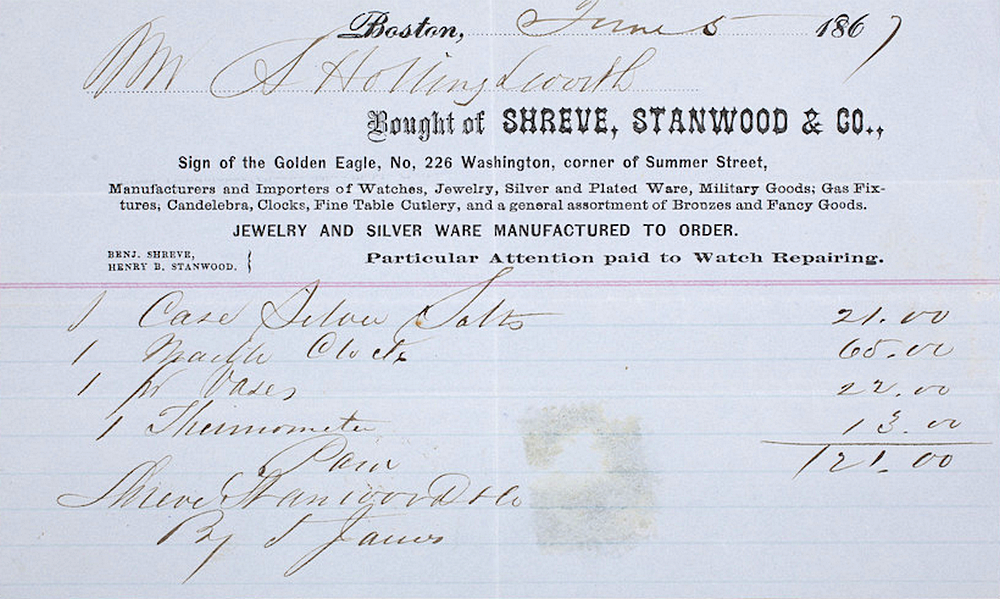 Boston, June 5 1867
Mr S Hollingsworth
Bought of SHREVE, STANWOOD & CO.,
Sign of the Golden Eagle, No, 226 Washington, corner of Summer Street,
Manufacturers and Importers of Watches, Jewelry, Silver and Plated Ware, Military Goods; Gas Fix-
tures, Candelebra, Clocks, Fine Table Cutlery, and a general assortment of Bronzes and Fancy Goods.
JEWELRY AND SILVER WARE MANUFACTURED TO ORDER.
BENJ. SHREVE,
HENRY B. STANWOOD.
Particular Attention paid to Watch Repairing.
1 Case Silver Salts 21.00
1 Marble Clock 65.00
1 Pr Vases 22.00
1 Thermometer 13.00
Paid 121.00
Shreve Stanwood & Co
By J James